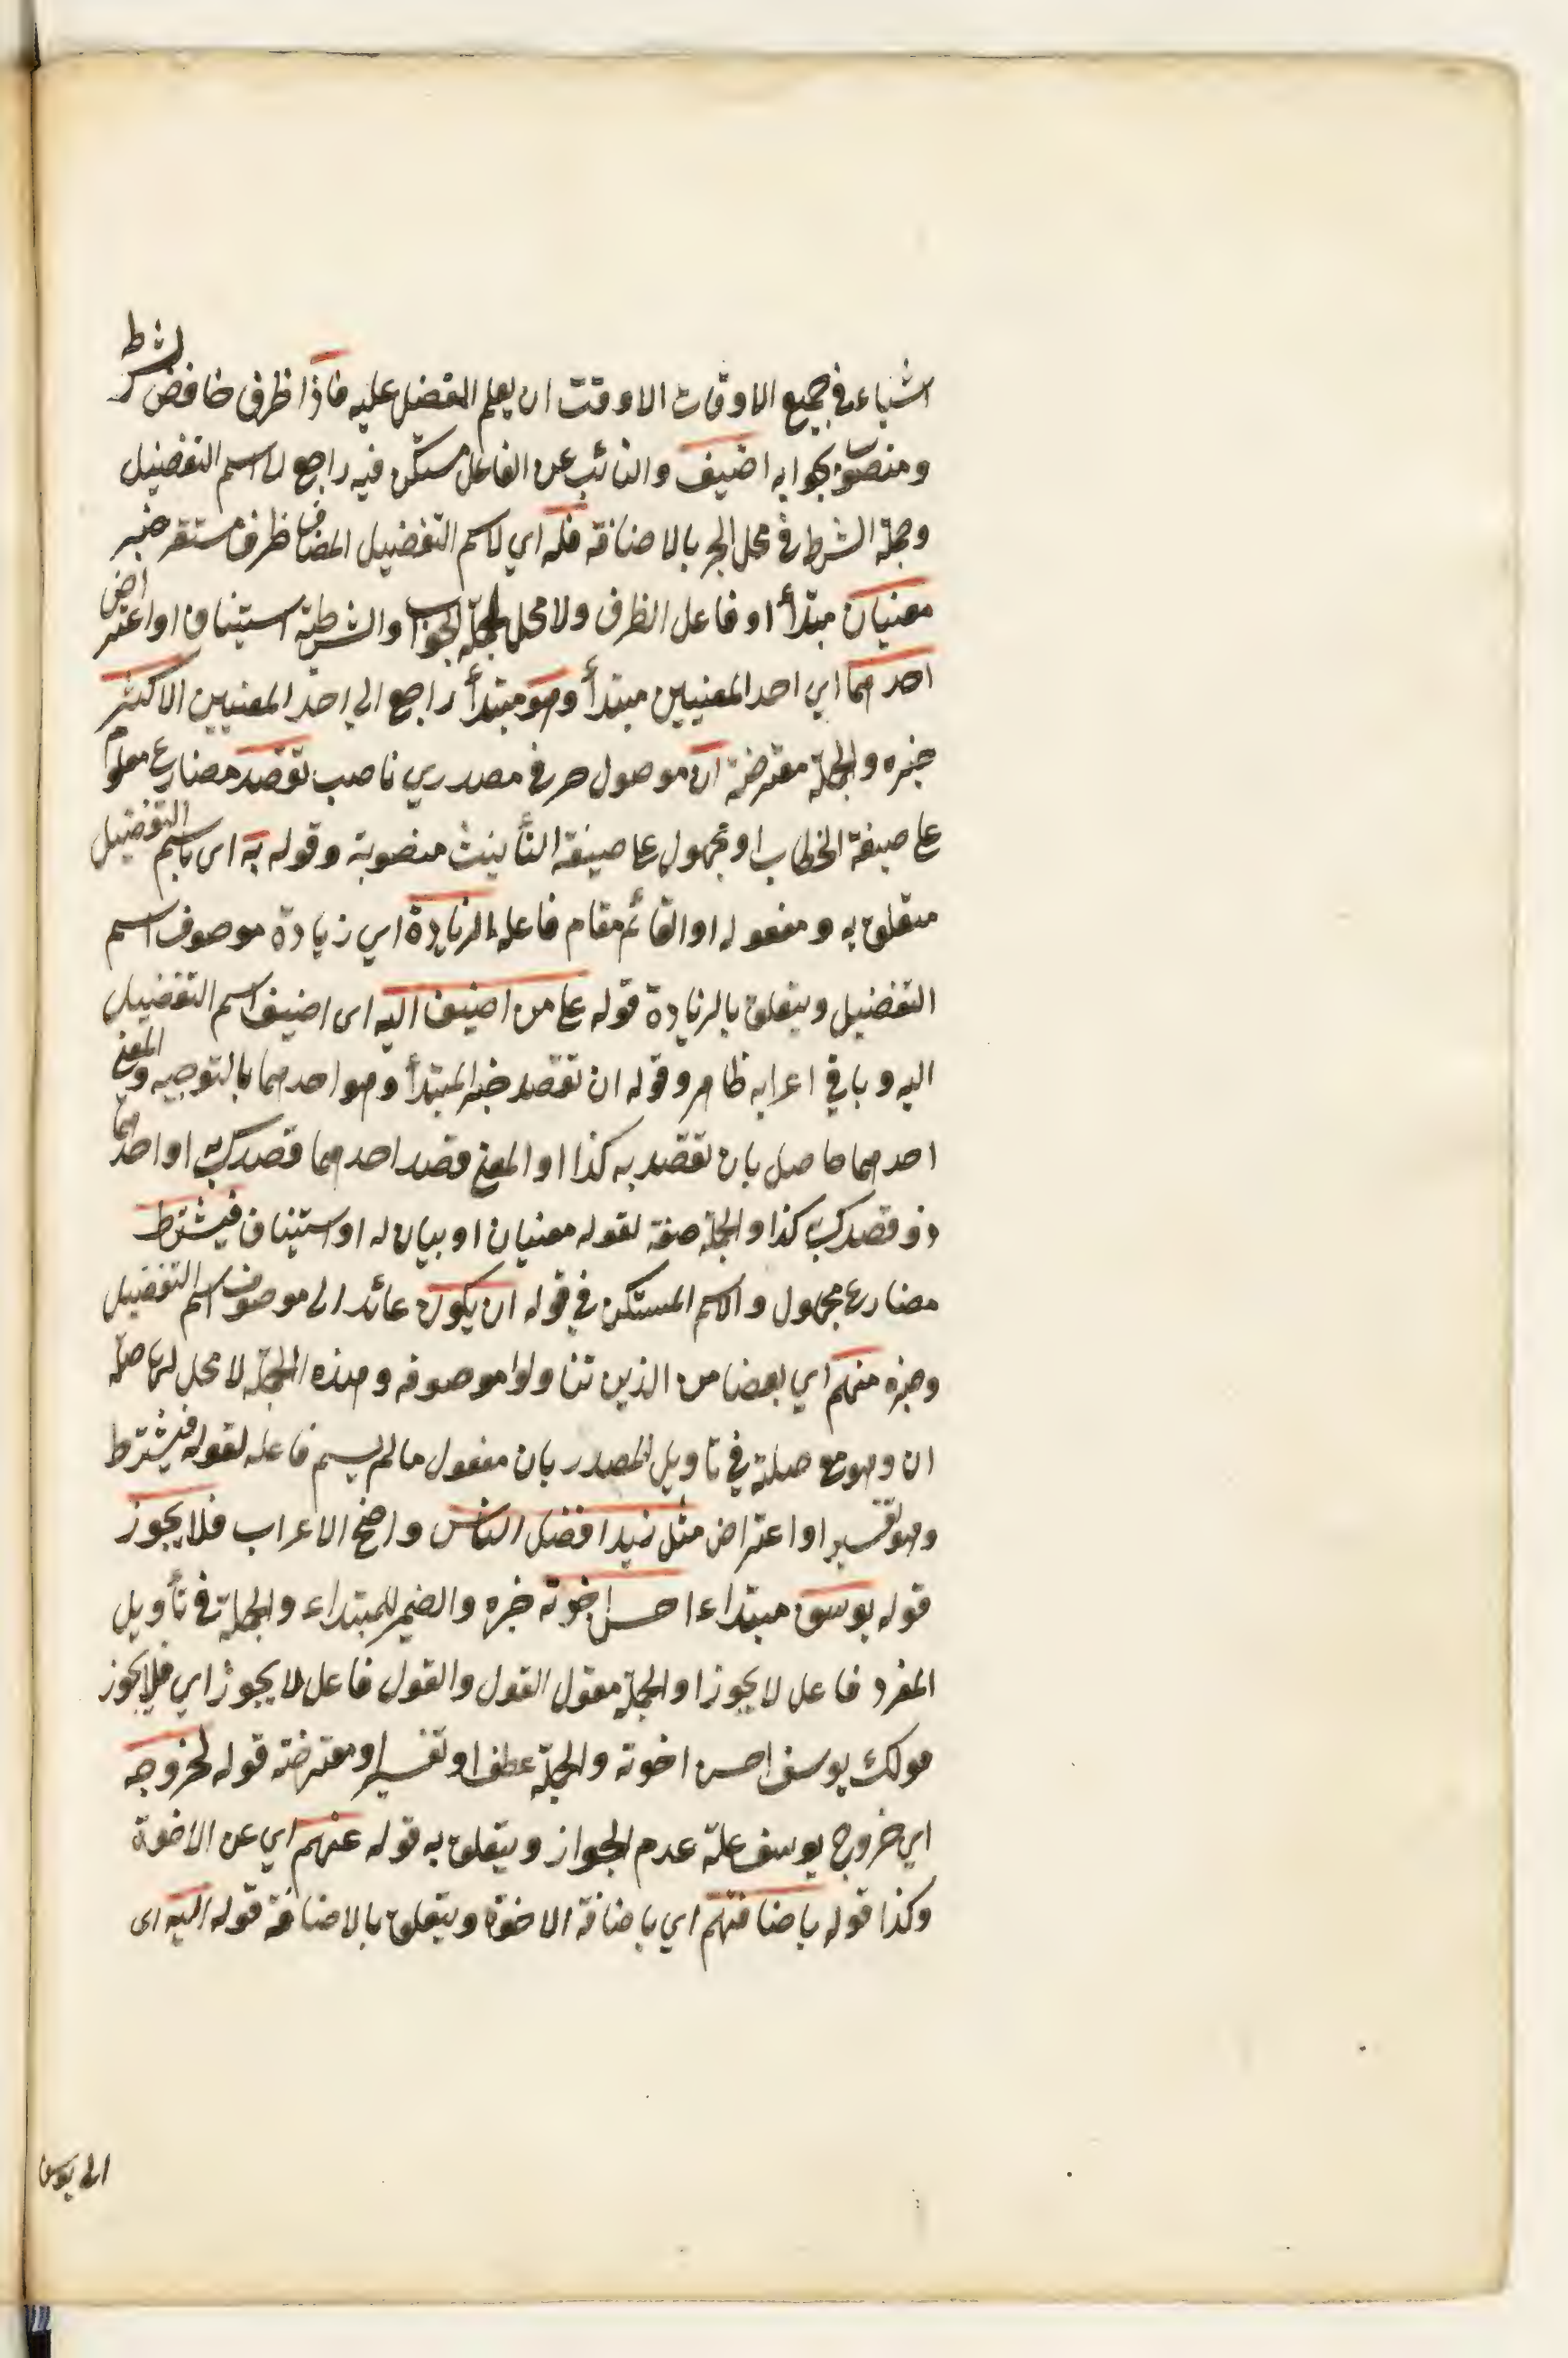 اشياء في جميع الاوقات الا وقت ان يعلم المفضل عليه فاذا ظرف خافض لشرطه
ومنصوب بجوابه اضيف والنائب عن الفاعل مستكن فيه راجع لاسم التفضيل
وجملة الشرط في محل الجر بالاضافة فله اي لاسم التفضيل المضاف ظرف مستقر خبر
معنيان مبتدأ او فاعل الظرف ولا محل لجملة الجواب والشرطية استيناف او اعتراض
احدهما اي احد المعنيين مبتدأ وهو مبتدأ راجع الي احد المعنيين الاكثر
خبره والجملة معترضة ان موصول حرفي مصدري ناصب تقصد مضارع معلوم
على صيغة الخطاب او مجهول على صيغة التأنيث منصوبة وقوله به اى باسم التفضيل
متعلق به ومفعوله او القائم مقام فاعله الزيادة اي زيادة موصوف اسم
التفضيل ويتعلق بالزيادة قوله على من اضيف اليه اى اضيف اسم التفضيل
اليه وباقي اعرابه ظاهر وقوله ان تقصد خبر المبتدأ وهو احدهما بالتوجيه والمعنى
احدهما حاصل بان تقصد به كذا او المعنى قصد احدهما قصدك به او احدهما
ذو قصدك به كذا والجملة صفة لقوله معنيان او بيان له او استيناف فيشترط
مضارع مجهول والاسم المستكن في قوله ان يكون عائد الى موصوف اسم التفضيل
وخبره منهم اي بعضا من الذين تناولوا موصوفه وهذه الجملة لا محل لها صلة
ان وهو مع صلته في تاويل المصدر بان مفعول مالم يسم فاعله لقوله فيشترط
وهو تفسير او اعتراض مثل زيد افضل الناس واضح الاعراب فلا يجوز
قوله يوسف مبتداء احسن اخوته خبره والضمير للمبتداء والجملة في تأويل
المفرد فاعل لا يجوز او الجملة مقول القول والقول فاعل لا يجوز اي فلا يجوز
قولك يوسف احسن اخوته والجملة عطف او تفسير او معترضة قوله لخروجه
اي خروج يوسف علة عدم الجواز ويتعلق به قوله عنهم اي عن الاخوة
وكذا قوله باضافتهم اي باضافة الاخوة ويتعلق بالاضافة قوله اليه اى
الى يوسف